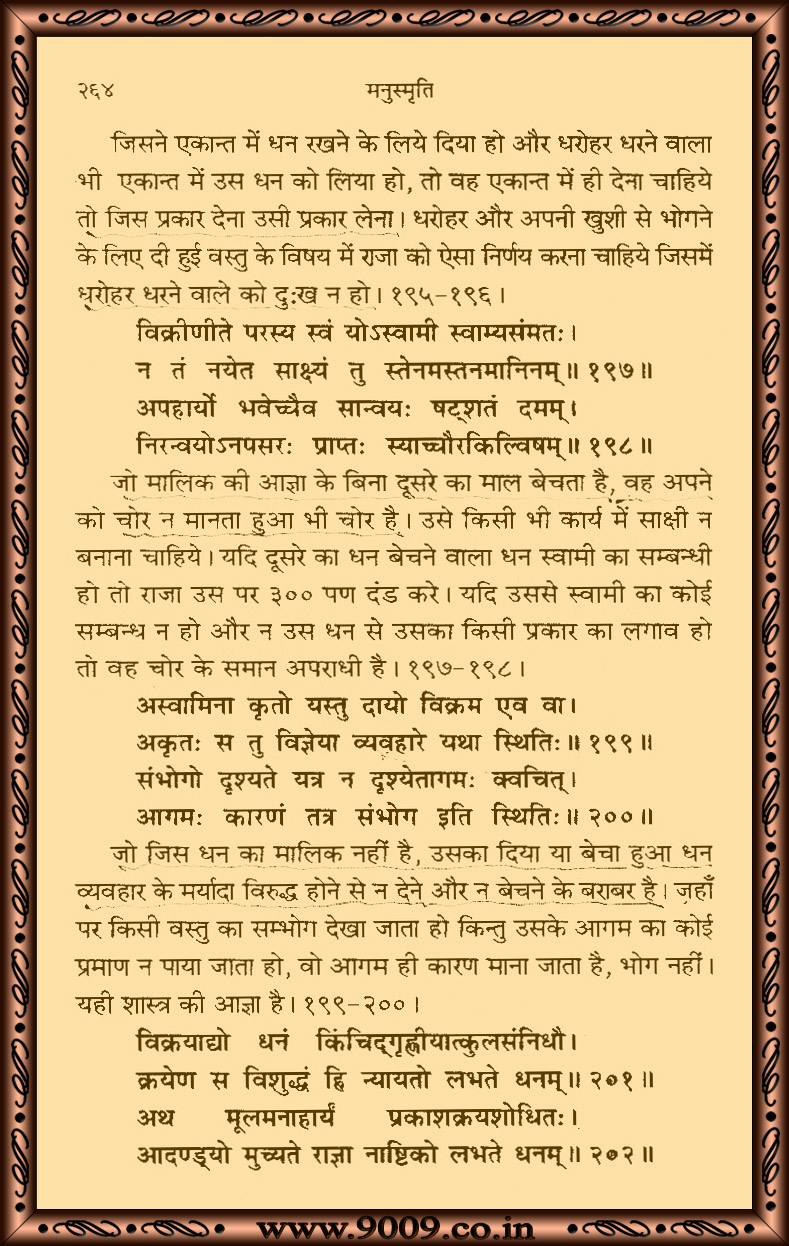 २६४ मनुस्मृति
जिसने एकान्त में धन रखने के लिये दिया हो और धरोहर धरने वाला
भी एकान्त में उस धन को लिया हो, तो वह एकान्त में ही देना चाहिये
तो जिस प्रकार देना उसी प्रकार लेना। धरोहर और अपनी खुशी से भोगने
के लिए दी हुई वस्तु के विषय में राजा को ऐसा निर्णय करना चाहिये जिसमें
धरोहर धरने वाले को दुःख न हो। १९५-१९६।
विक्रीणीते परस्य स्वं योऽस्वामी स्वाम्यसंमतः।
न तं नयेत साक्ष्यं तु स्तेनमस्तनमानिनम्॥ १९७॥
अपहार्यो भवेच्चैव सान्वयः षट्शतं दमम्।
निरन्वयोऽनपसरः प्राप्तः स्याच्चौरकिल्विषम्॥ १९८॥
जो मालिक की आज्ञा के बिना दूसरे का माल बेचता है, वह अपने
को चोर न मानता हुआ भी चोर है। उसे किसी भी कार्य में साक्षी न
बनाना चाहिये। यदि दूसरे का धन बेचने वाला धन स्वामी का सम्बन्धी
हो तो राजा उस पर ३०० पण दंड करे। यदि उससे स्वामी का कोई
सम्बन्ध न हो और न उस धन से उसका किसी प्रकार का लगाव हो
तो वह चोर के समान अपराधी है। १९७-१९८।
अस्वामिना कृतो यस्तु दायो विक्रम एव वा।
अकृतः स तु विज्ञेया व्यवहारे यथा स्थितिः॥ १९९॥
संभोगो दृश्यते यत्र न दृश्येतागमः क्वचित्।
आगमः कारणं तत्र संभोग इति स्थितिः॥ २००॥
जो जिस धन का मालिक नहीं है, उसका दिया या बेचा हुआ धन
व्यवहार के मर्यादा विरुद्ध होने से न देने और न बेचने के बराबर है। जहाँ
पर किसी वस्तु का सम्भोग देखा जाता हो किन्तु उसके आगम का कोई
प्रमाण न पाया जाता हो, वो आगम ही कारण माना जाता है, भोग नहीं।
यही शास्त्र की आज्ञा है। १९९-२००।
विक्रयाद्यो धनं किंचिद्गृह्णीयात्कुलसंनिधौ।
क्रयेण स विशुद्धं हि न्यायतो लभते धनम्॥ २०१॥
अथ मूलमनाहार्यं प्रकाशक्रयशोधितः।
आदण्ड्यो मुच्यते राज्ञा नाष्टिको लभते धनम्॥ २०२॥
www.9009.co.in